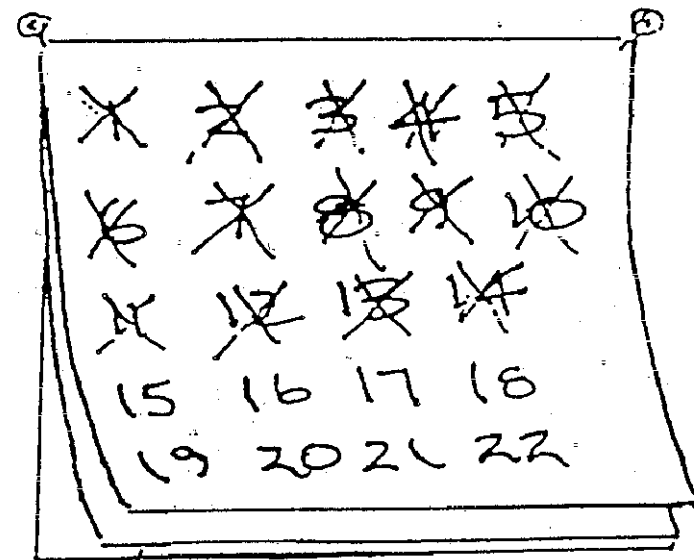 1 2 3 4 5
6 7 8 9 10
11 12 13 14
15 16 17 18
19 20 21 22